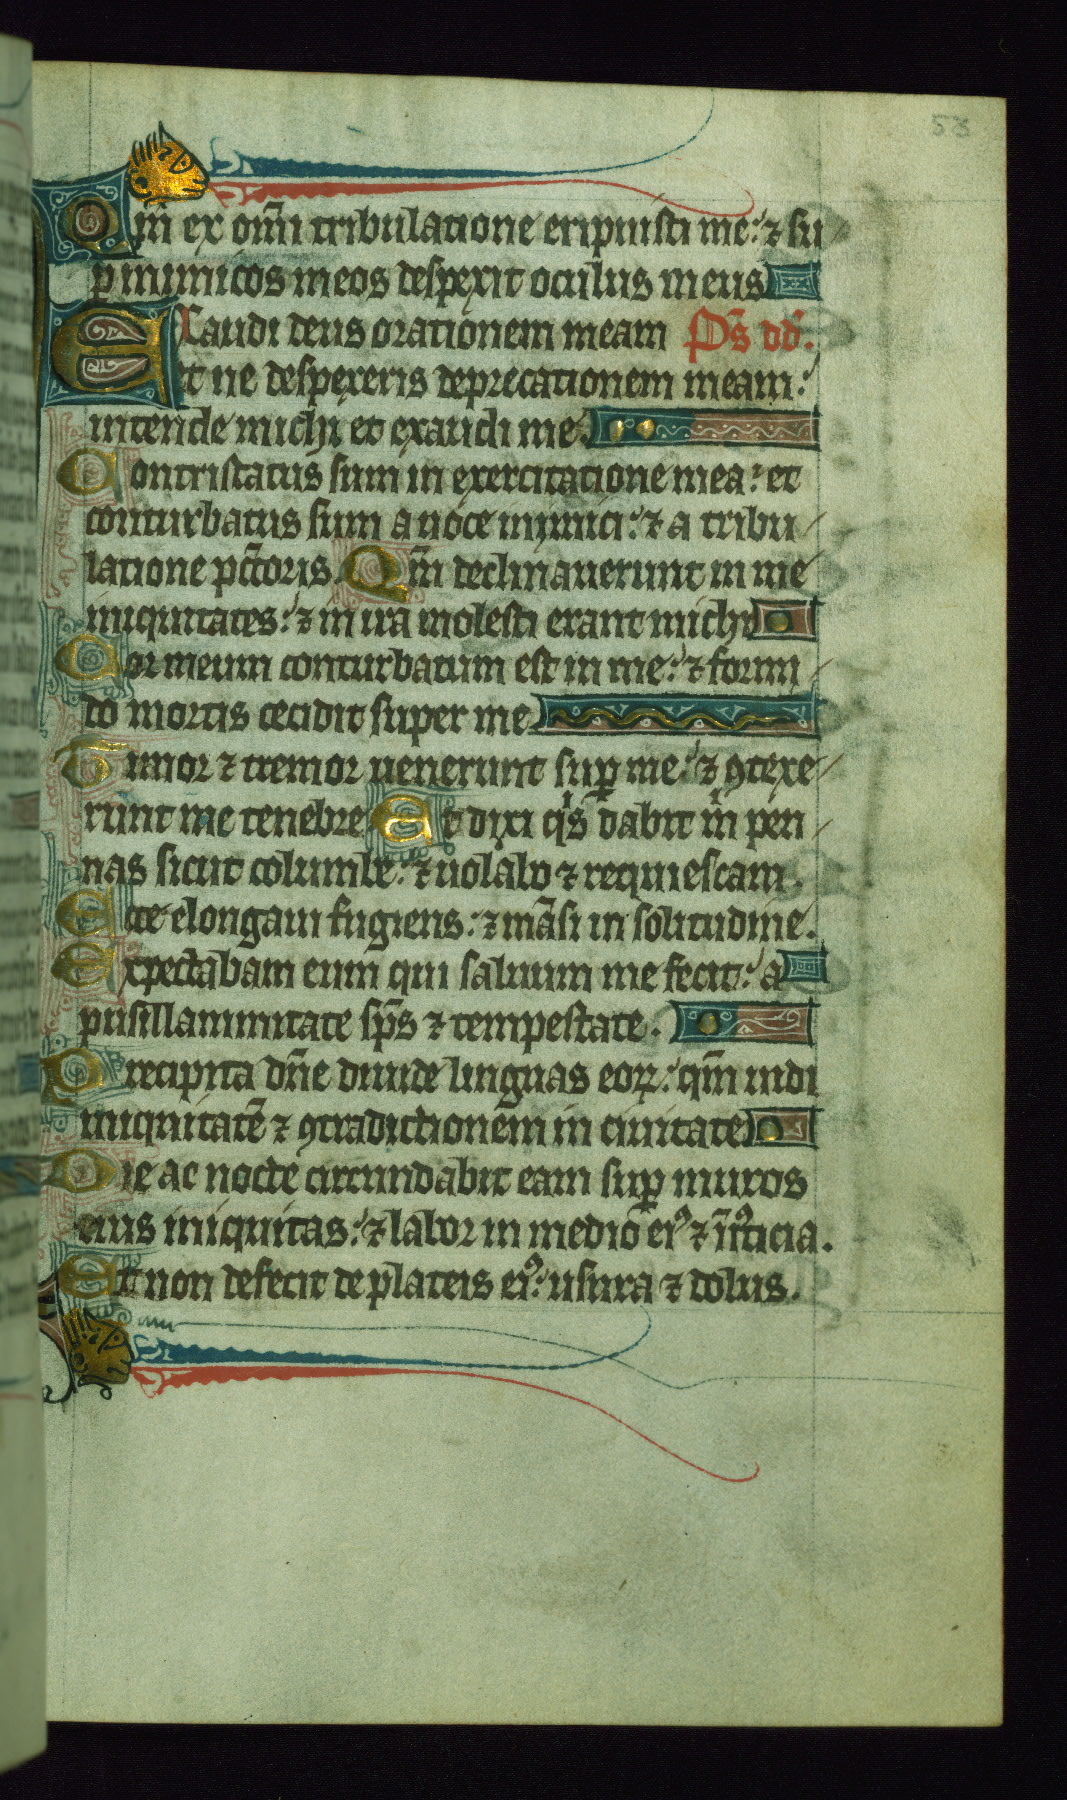 53
Qm̄ ex om̄i tribulatione eripuisti me: ⁊ su
ꝑ inimicos meos despexit oculus meus
Exaudi deus orationem meam Ps̄ dd̄.
et ne despexeris deprecationem meam:
intende michi et exaudi me.
Contristatus sum in exercitatione mea: et
conturbatus sum a uoce inimici: ⁊ a tribu
latione pctōris. Qm̄ declinauerunt in me
iniquitates: ⁊ in ira molesti erant michi
Cor meum conturbatum est in me: ⁊ formi
do mortis cecidit super me
Timor ⁊ tremor uenerunt suꝑ me: ⁊ ꝯtexe
runt me tenebre Et dixi qͥs dabit mͥ pen
nas sicut columbe: ⁊ uolabo ⁊ requiescam.
Ecce elongaui fugiens: ⁊ māsi in solitudine.
Expectabam eum qui saluum me fecit: a
pusillanimitate sp̄s ⁊ tempestate.
Precipita dn̄e diuide linguas eoꝝ: qm̄ uidi
iniquitatē ⁊ ꝯtradictionem in ciuitate
Die ac nocte circundabit eam suꝑ muros
eius iniquitas: ⁊ labor in medio eiꝰ ⁊ iniꝰticia.
Et non defecit de plateis eiꝰ: usura ⁊ dolus.